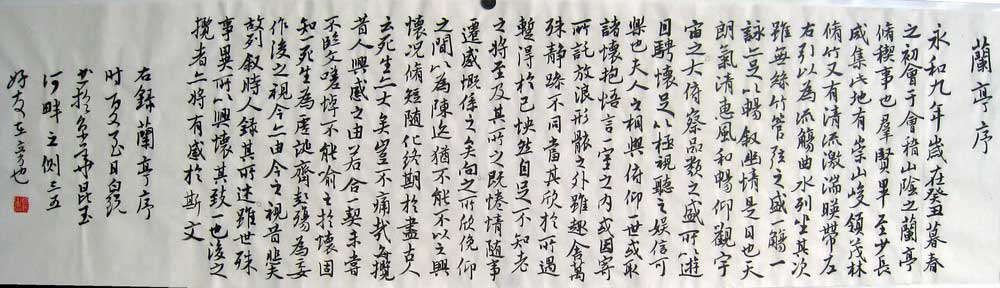 蘭亭序
永和九年歲在癸丑暮春
之初會于會稽山陰之蘭亭
脩稧事也羣賢畢至少長
咸集此地有崇山峻領茂林
脩竹又有清流激湍暎帶左
右引以為流觴曲水列坐其次
雖無絲竹管弦之盛一觴一
詠亦足以暢叙幽情是日也天
朗氣清惠風和暢仰觀宇
宙之大俯察品類之盛所以遊
目騁懷足以極視聽之娛信可
樂也夫人之相與俯仰一世或取
諸懷抱悟言一室之內或因寄
所託放浪形骸之外雖趣舍萬
殊靜躁不同當其欣於所遇
暫得於己怏然自足不知老
之將至及其所之既惓情隨事
遷感慨係之矣向之所欣俛仰
之間以為陳迹猶不能不以之興
懷況脩短隨化終期於盡古人
云死生亦大矣豈不痛哉每攬
昔人興感之由若合一契未嘗
不臨文嗟悼不能喻之於懷固
知死生為虛誕齊彭殤為妄
作後之視今亦由今之視昔悲夫
故列叙時人錄其所述雖世殊
事異所以興懷其致一也後之
攬者亦將有感於斯文
右錄蘭亭序
河畔之側三五
好友在旁也